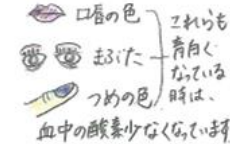 口唇の色
まぶた
つめの色
これらも
青白く
なっている
時は、
血中の酸素少なくなっています